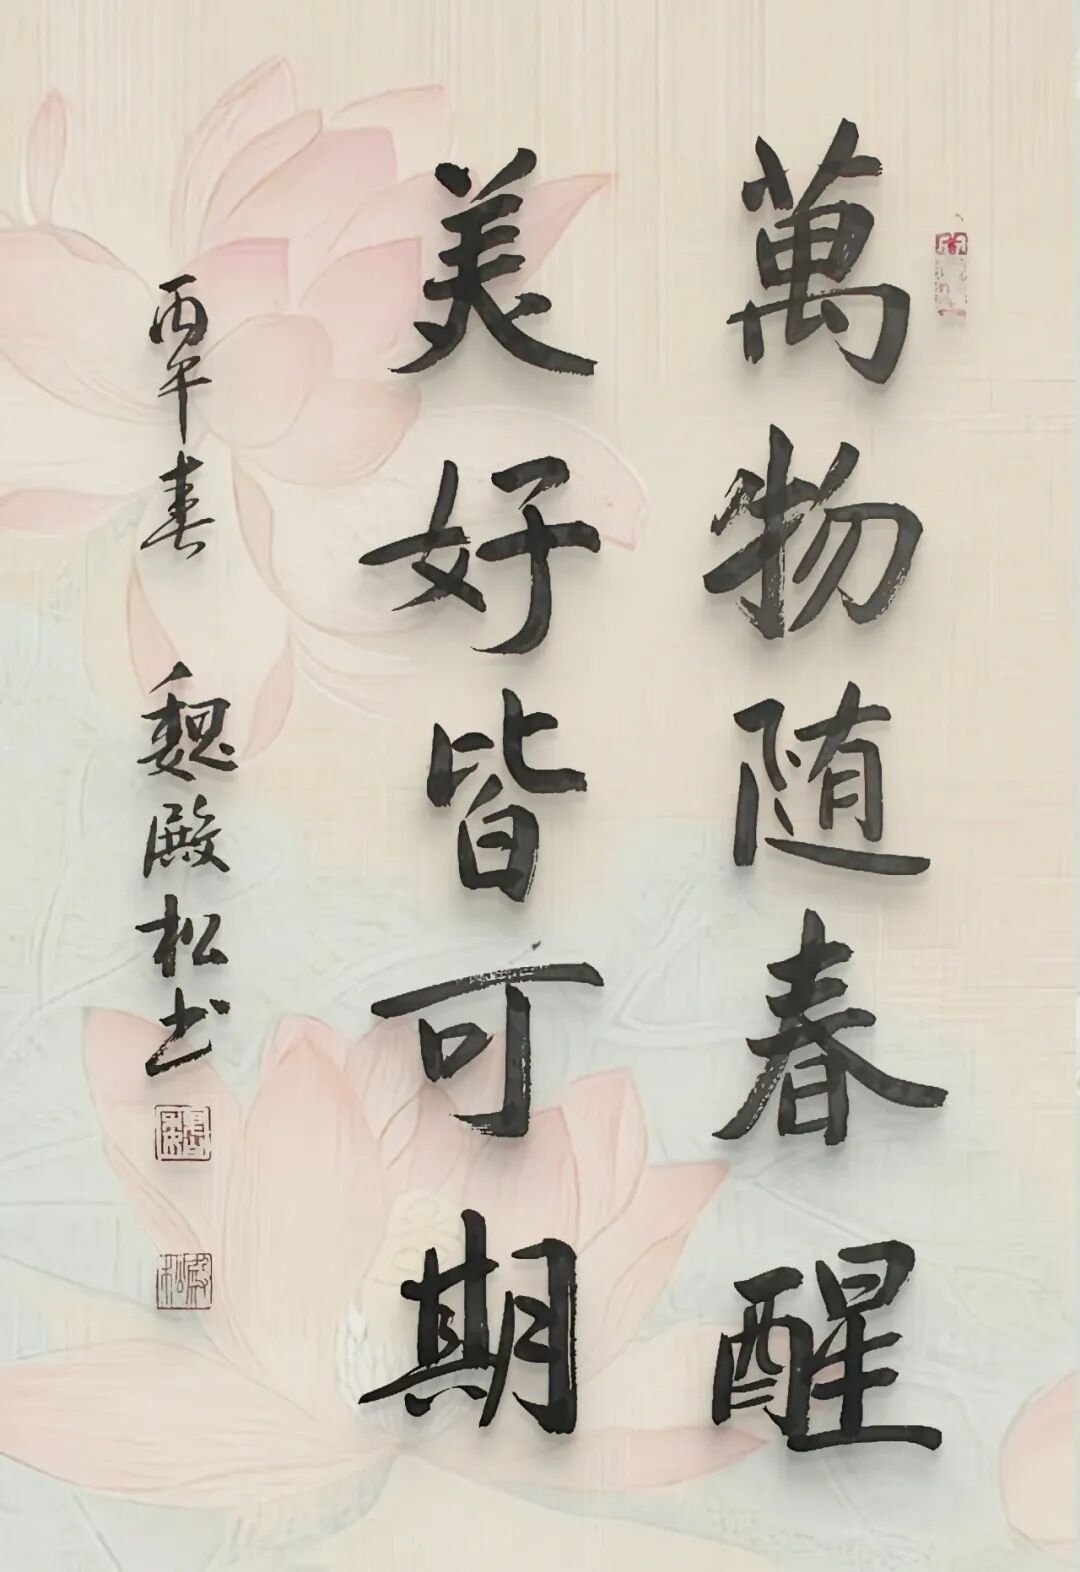 萬物随春醒
美好皆可期
丙午春 魏殿松书